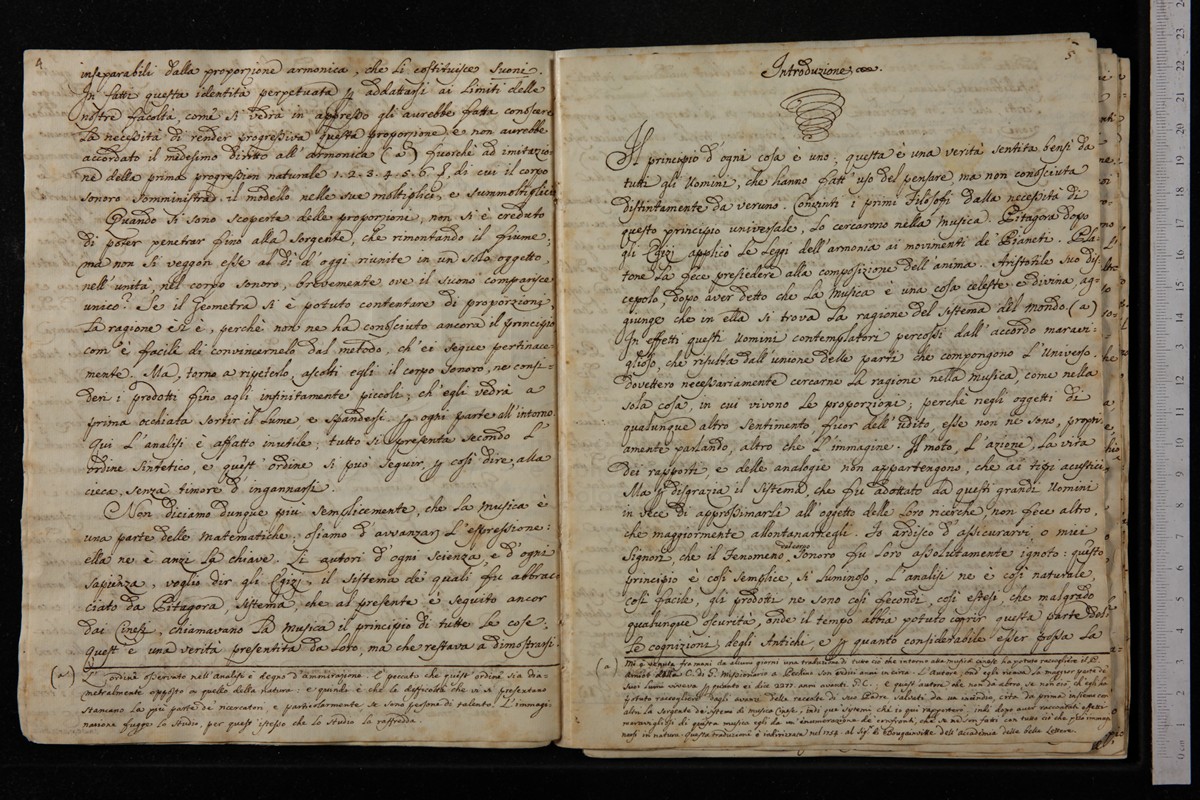 4.
inseparabili dalla proporzione armonica, che li costituisce suoni.
In fatti questa identità perpetuata p addattarsi ai limiti delle
nostre facoltà, come si vedrà in appresso gli avrebbe fatta conoscere
la necessità di render progressiva questa proporzione, e non avrebbe
accordato il medesimo diritto all'armonica (a) fuorchè ad imitazio-
ne della prima progression naturale 1. 2. 3. 4. 5. 6. &, di cui il corpo
sonoro somministra il modello nelle sue moltiplici, e summoltiplici
Quando si sono scoperte delle proporzioni, non si è creduto
di poter penetrar fino alla sorgente, che rimontando il fiume;
ma non si veggon esse al dì d'oggi riunite in un solo oggetto,
nell'unità, nel corpo sonoro, brevemente, ove il suono comparisce
unico? Se il Geometra si è potuto contentare di proporzioni,
la ragione si è, perchè non ne ha conosciuto ancora il principio
com'è facile di convincernelo dal metodo, ch'ei segue pertinace-
mente. Ma, torno a ripeterlo, ascolti egli il corpo sonoro, ne consi-
deri i prodotti fino agli infinitamente piccoli; ch'egli vedrà a
prima occhiata sortir il lume e spandersi p ogni parte all'intorno.
Qui l'analisi è affatto inutile: tutto si presenta secondo l'
ordine sintetico, e quest'ordine si può seguir p così dire, alla
cieca, senza timore d'ingannarsi.
Non diciamo dunque più semplicemente, che la musica è
una parte delle matematiche; osiamo d'avvanzar l'espressione:
ella ne è anzi la chiave. Li autori d'ogni scienza, e d'ogni
sapienza, voglio dir gli Egizj, il sistema de' quali fu abbrac
ciato da Pitagora, sistema, che al presente è seguito ancor
dai Cinesi, chiamavano la musica il principio di tutte le cose.
Quest'è una verità presentita da loro, ma che restava a dimostrarsi.
(a) L'ordine osservato nell'Analisi è degno d'ammirazione. È peccato che quest'ordine sia dia-
metralmente opposto a quello della natura: e quindi è che le difficoltà che vi si presentano
stancano la più parte de' ricercatori, e particolarmente se sono persone di talento. L'immagi-
nazione fugge lo studio, per quest'istesso che lo studio la raffredda.
5
Introduzione.
Il principio d'ogni cosa è uno; questa è una verità sentita bensì da
tutti gli Uomini, che hanno fatt'uso del pensare ma non conosciuta
distintamente da veruno. Convinti i primi Filosofi dalla necessità di
questo principio universale, lo cercarono nella musica. Pitagora dopo
gli Egizj applicò le leggi dell'armonia ai movimenti de' Pianeti. Pla-
tone la fece presiedere alla composizione dell'anima. Aristotile suo dis-
cepolo, dopo aver detto che la musica è una cosa celeste, e divina, ag-
giunge che in ella si trova la ragione del sistema del mondo. (a)
In effetti questi Uomini contemplatori percossi dall'accordo maravi-
glioso, che risulta dall'unione delle parti che compongono l'Universo,
dovettero necessariamente cercarne la ragione nella musica, come nella
sola cosa, in cui vivono le proporzioni; perchè negli oggetti di
qualunque altro sentimento, fuor dell'udito, esse non ne sono, propri
amente parlando, altro che l'immagine. Il moto, l'azione, la vita
dei rapporti, e delle analogie non appartengono, che ai tipi acustici.
Ma p disgrazia il sistema, che fu adottato da questi grandi Uomini
in vece di approssimarli all'oggetto delle loro ricerche non fece altro,
che maggiormente allontanarnegli. Io ardisco d'assicurarvi o miei
Signori, che il Fenomeno sonoro fu loro assolutamente ignoto: questo
principio è così semplice, sì luminoso, l'analisi ne è così naturale,
così facile, gli prodotti ne sono così fecondi, così estesi, che malgrado
qualunque oscurità, onde il tempo abbia potuto coprir questa parte del-
le cognizioni degli Antichi e p quanto considerabile esser possa la
(a) Mi è venuta fra mani da alcuni giorni una traduzione di tutto ciò che intorno alla musica cinese ha potuto raccogliere il P.
Amiot della C. di G. Missionario a Pechino
altra la sorgente de' sistemi di musica Cinesi,
narsi in natura. Questa traduzione è indirizzata nel 1754. al Sig.r di Bougainville dell'Accademia delle belle Lettere.